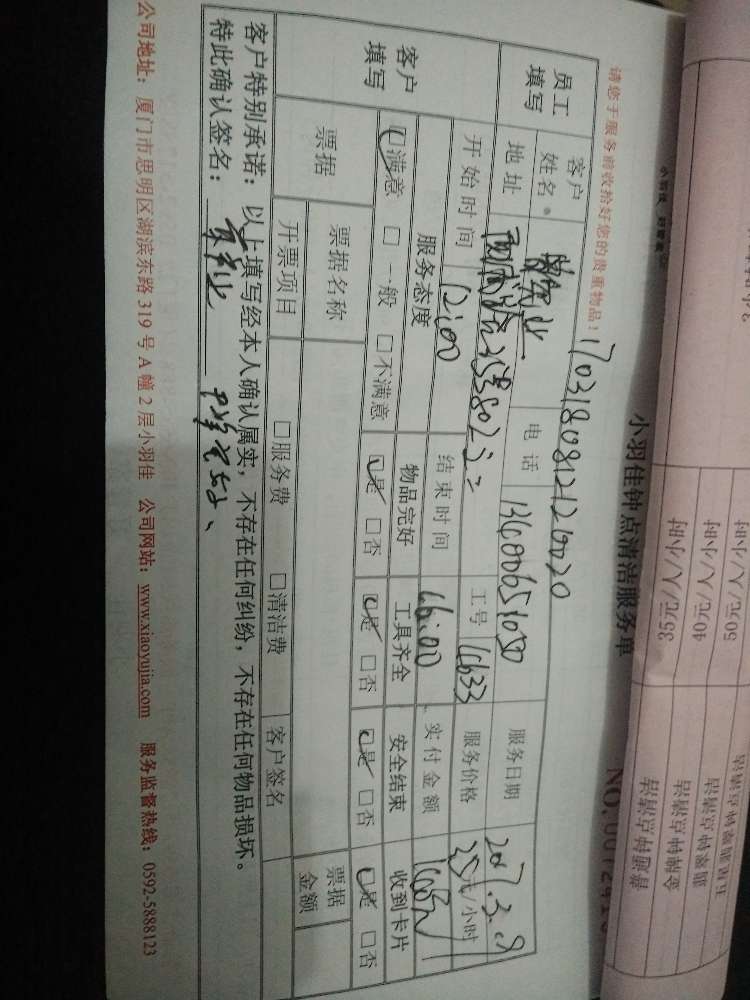 小羽佳钟点清洁服务单
请您于服务前收拾好您的贵重物品！
17031808121260020
员工填写
客户姓名
电话
13600651050
服务日期
2017.3.19
地址
802
工号
1633
服务价格
35元/小时
开始时间
12:00
结束时间
16:00
实付金额
客户填写
服务态度
物品完好
工具齐全
安全结束
收到卡片
☑满意 □一般 □不满意
☑是 □否
☑是 □否
☑是 □否
☑是 □否
票据
票据名称
票据金额
开票项目
□服务费 □清洁费
客户签名
客户特别承诺：以上填写经本人确认属实，不存在任何纠纷，不存在任何物品损坏。
特此确认签名：
公司地址：厦门市思明区湖滨东路 319 号 A 幢 2 层小羽佳 公司网站：www.xiaoyujia.com 服务监督热线：0592-5888123
35元/人/小时
40元/人/小时
50元/人/小时